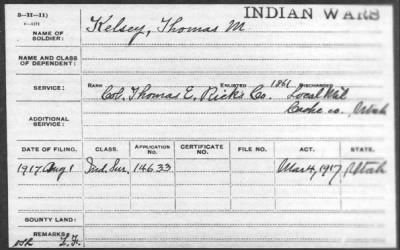 INDIAN WARS
3—21—11)
NAME OF SOLDIER: Kelsey, Thomas M
NAME AND CLASS OF DEPENDENT:
SERVICE: RANK ENLISTED 1861 DISCHARGED
Col. Thomas E. Ricks Co. Local Mil
Cache co. Utah
ADDITIONAL SERVICE:
DATE OF FILING. CLASS. APPLICATION NO. CERTIFICATE NO. FILE NO. ACT. STATE.
1917 Aug 1 Ind. Sur. 14633 Mar 4, 1917 Utah
BOUNTY LAND:
REMARKS: